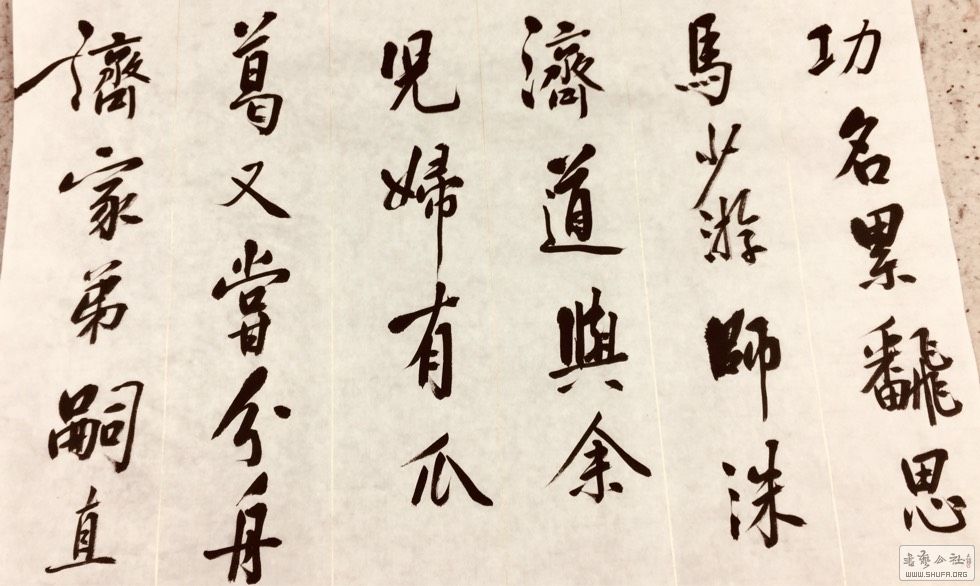 功名累翻思
馬少游師洙
濟道與余
兒婦有瓜
葛又當分舟
濟家弟嗣直
書艺公社
WWW.SHUFA.ORG